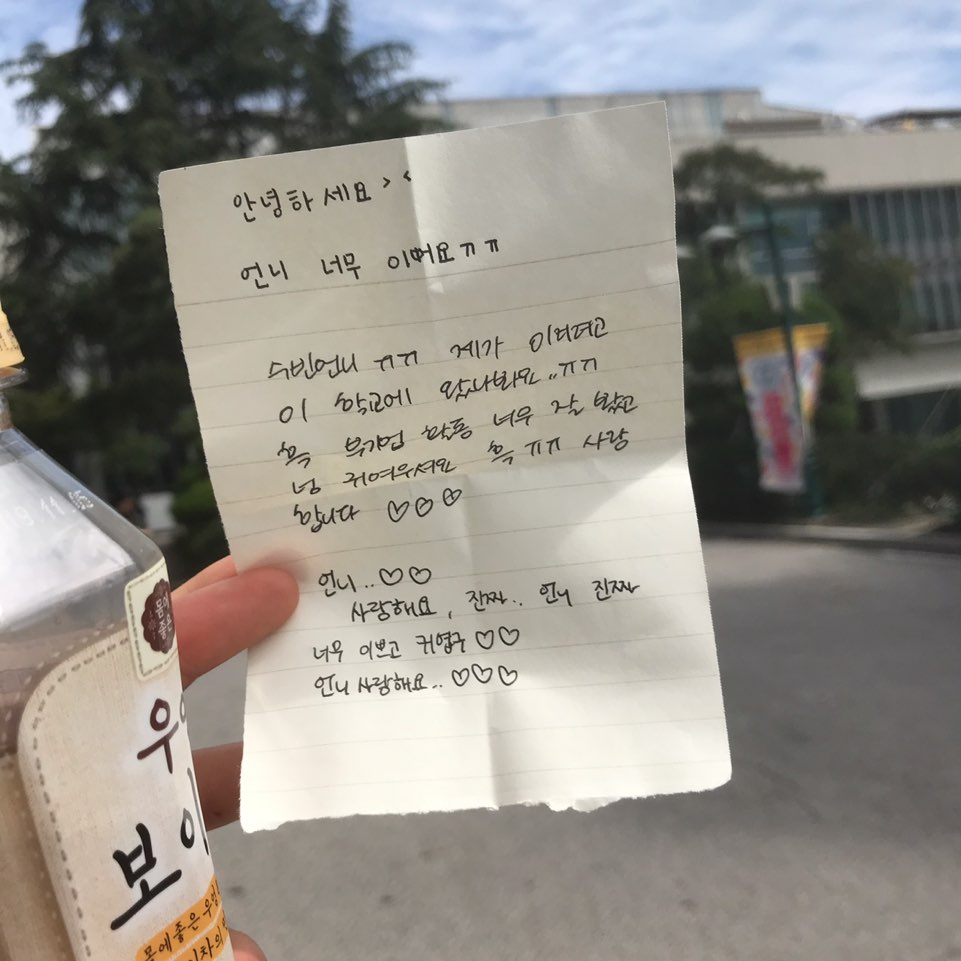 안녕하세요 > <
언니 너무 이뻐요ㅠㅠ
수빈언니 ㅠㅠ 제가 이러려고
이 학교에 왔나봐요..ㅠㅠ
흑 부기업 활동 너무 잘 봤고
넘 귀여우셔요 흑 ㅠㅠ 사랑
합니다 ♡♡♡
언니..♡♡
사랑해요, 진짜.. 언니 진짜
너무 이쁘고 귀엽구 ♡♡
언니 사랑해요.. ♡♡♡
몸에
좋은
우
보이
몸에좋은 우엉